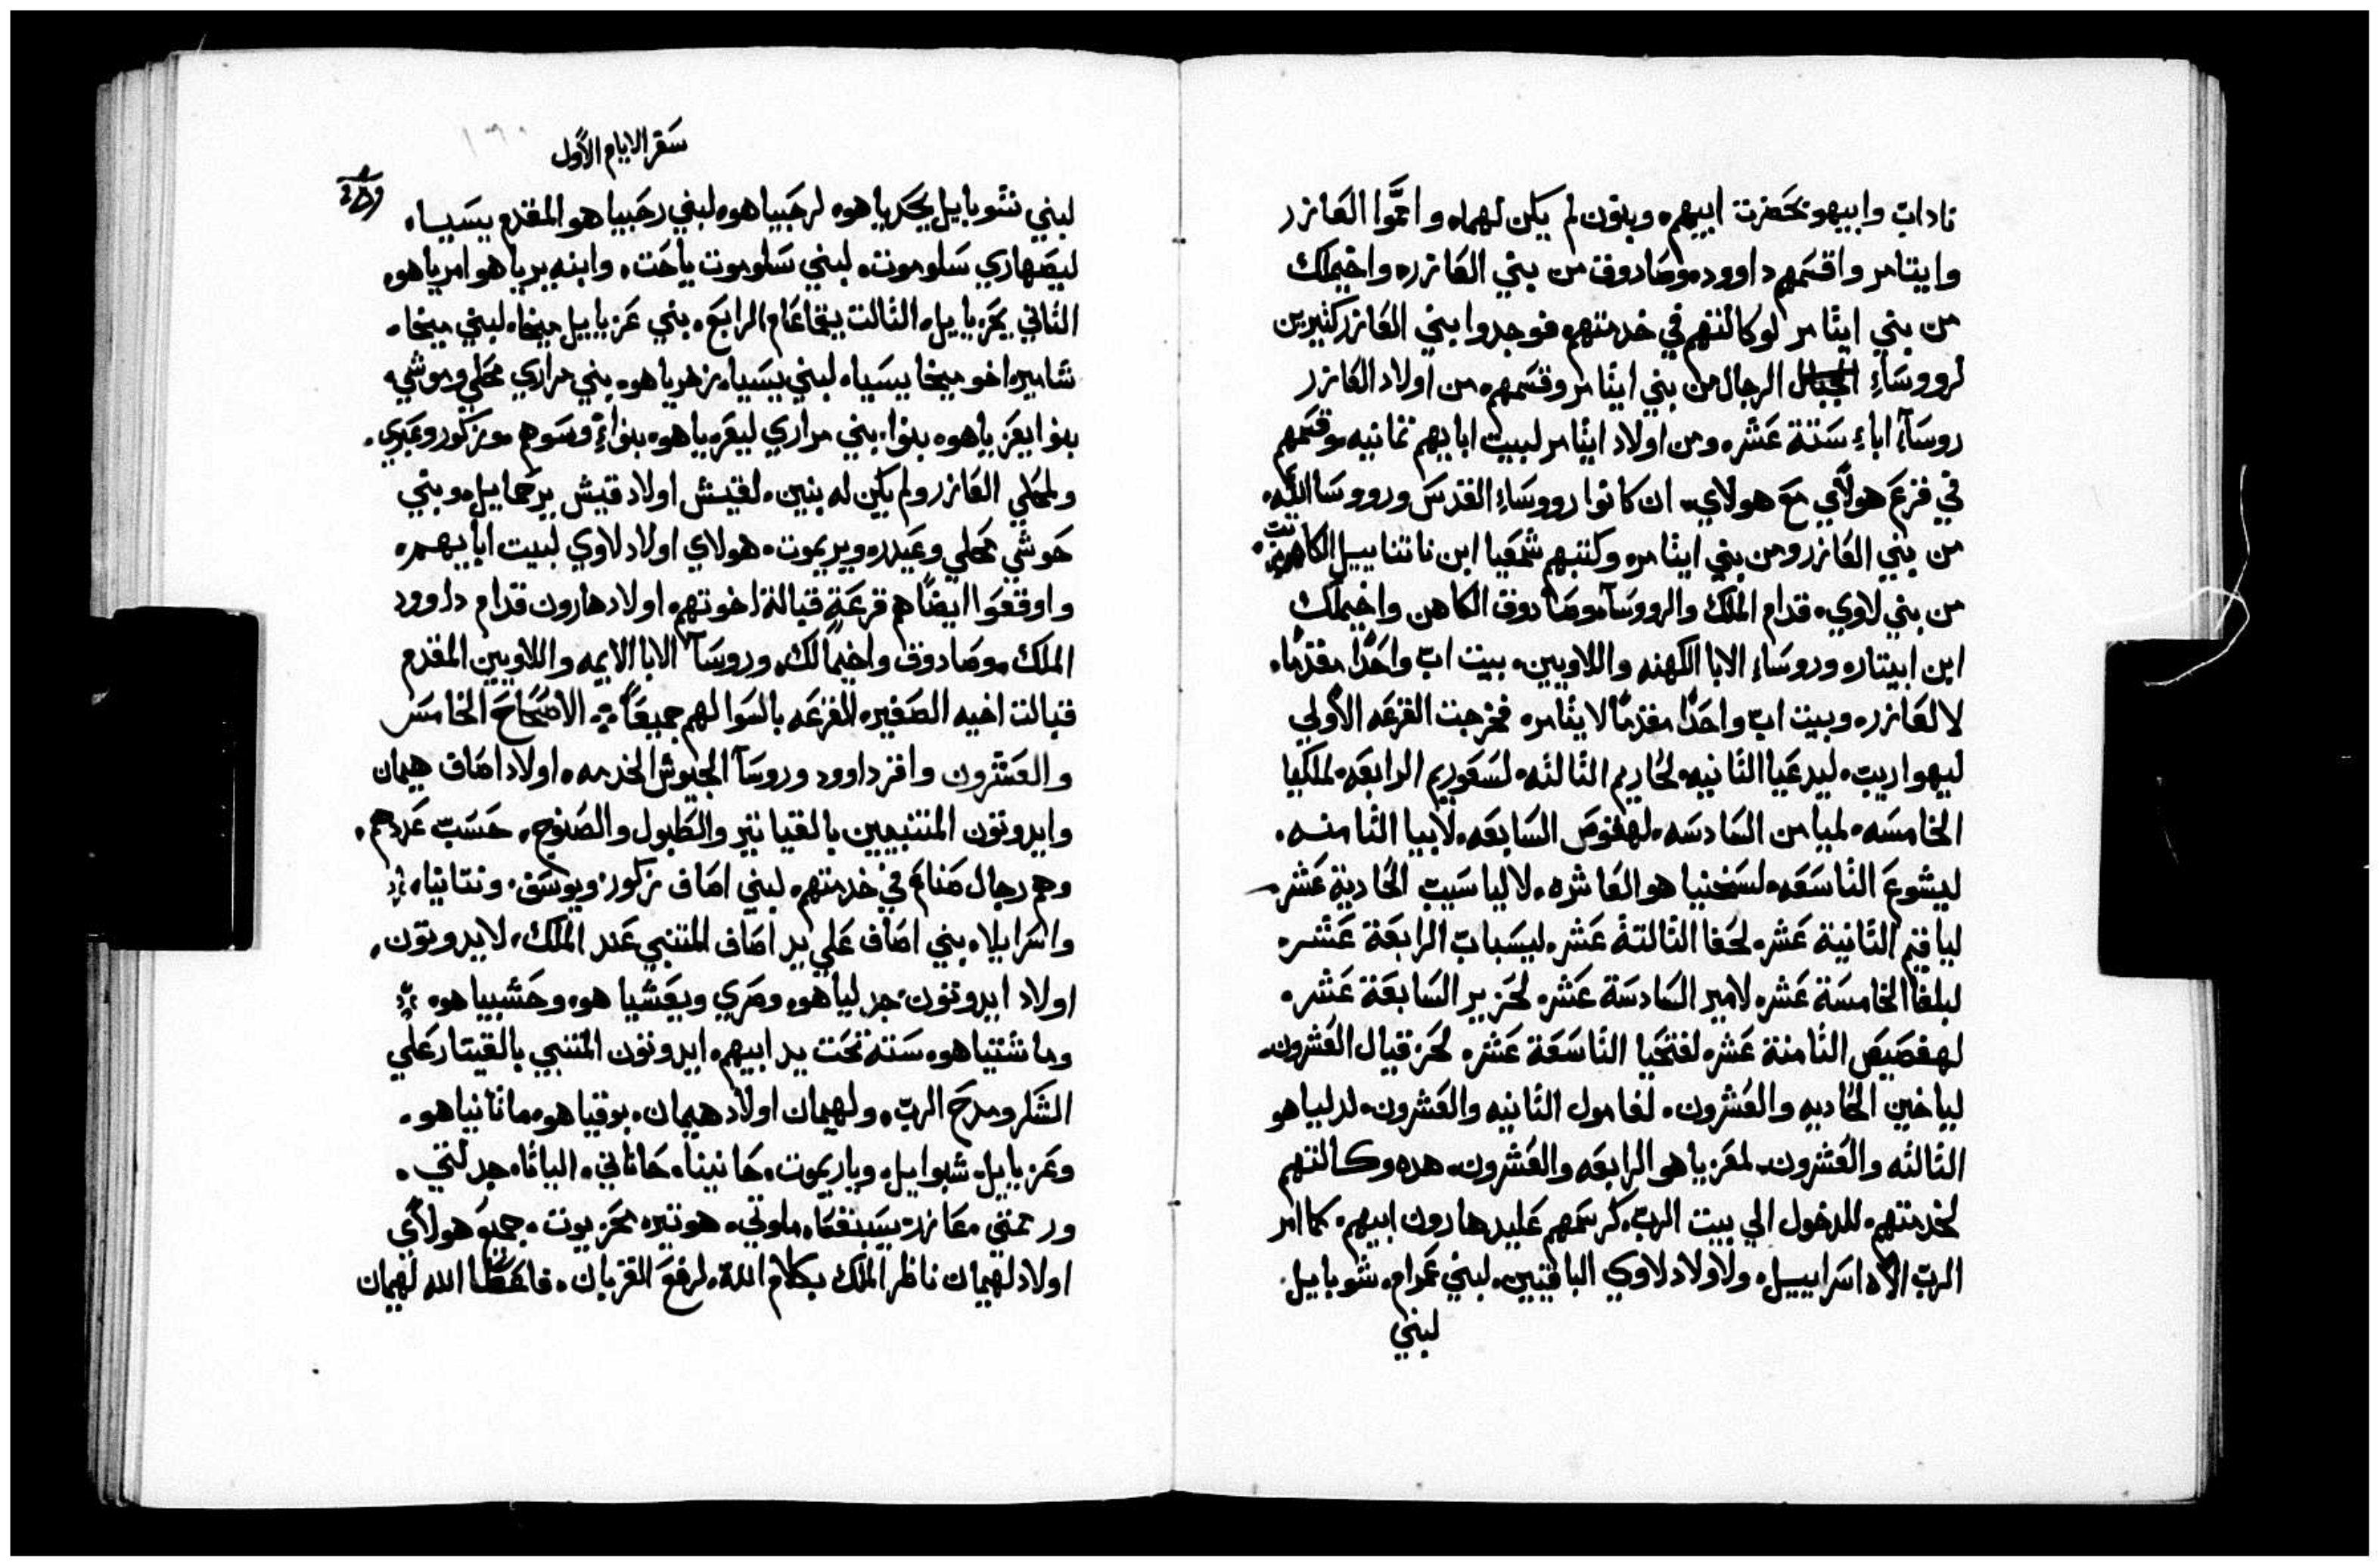 ناداب وابيهو بحضرت ابيهم وبنون لم يكن لهما واعموا العازر
وايتامر واقسمهم داوود وصادوق من بني العازر واخيملك
من بني ايثامر لوكالتهم في خدمتهم فوجدوا بني العازر كثيرين
لرووساءِ الرجال من بني ايثامر وقسمهم من اولاد العازر
روساءِ اباءِ ستة عشر ومن اولاد ايثامر لبيت ابايهم ثمانيه وقسمهم
في قرع هولاي مع هولاي ان كانوا رووساءِ القدس ورووسا الله
من بني العازر ومن بني ايثامر وكتبهم شمعيا ابن ناتنا ييل الكاتب
من بني لاوي قدام الملك والرووسا وصادوق الكاهن واخيملك
ابن ابيتار وروساء الابا الكهنه واللاويين بيت اب واحدًا مقدمًا
لالعازر وبيت اب واحدًا مقدمًا لايثامر فخرجت القرعه الاولي
ليهواريب ليدعيا الثانيه لحاريم الثالثه لسعوريم الرابعه لملكيا
الخامسه لميامن السادسه لهقوص السابعه لابيا الثامنه
ليشوع التاسعه لسخنيا هو العاشره لالياسيب الحادية عشر
لياقيم الثانية عشر لحفا الثالثة عشر ليسباب الرابعة عشر
لبلغا الخامسة عشر لامير السادسة عشر لحزير السابعة عشر
لهفصيص الثامنة عشر لفتحيا التاسعة عشر لحزقيال العشرون
لياخين الحاديه والعشرون لغامول الثانيه والعشرون لدلياهو
الثالثه والعشرون لمعزياهو الرابعه والعشرون هده وكالتهم
لخدمتهم للدخول الي بيت الرب كرسمهم عليد هارون ابيهم كما امر
الرب الاه اسراييل ولاولاد لاوي الباقيين لبني عمرام شوبايل
لبني
سفر الايام الاول
لبني شوبايل يحدياهو لرحبياهو لبني رحبياهو المقدم يسيا
ليصهاري سلوموت لبني سلوموت ياحت وابنه يرياهو امرياهو
الثاني يحزياييل الثالت يتحاعام الرابع بني عزياييل ميخا لبني ميخا
شامير اخو ميخا يسيا لبني يسيا زخرياهو بني مراري محلي وموشي
بنوا يعزياهو بنوا بني مراري ليعزياهو بنواءِ وسوهم وزكور وعبري
ولمحلي العازر ولم يكن له بنين لقيش اولاد قيش يرحماييل وبني
حوشي محلي وعيدر ويريموت هولاي اولاد لاوي لبيت ابايهم
واوقعوا ايضًا هم قرعة قبالة اخوتهم اولاد هارون قدام داوود
الملك وصادوق واخيمالك وروسا الابا الايمه واللاويين المقدم
قبالت اخيه الصغير القرعه بالسوا لهم جميعًا الاصحاح الخامس
والعشرون وافرز داوود وروسا الجيوش الخدمه اولاد اصاف هيمان
وايدوتون المتنبيين بالقياتير والطبول والصنوج حسب عددهم
وهم رجال صناع في خدمتهم لبني اصاف زكور ويوسف ونتانيا
واسرايلا بني اصاف علي يد اصاف المتنبي عند الملك لايدوتون
اولاد ايدوتون جدلياهو وصري ويعشياهو وحشبياهو
وماشتياهو سته تحت يد ابيهم ايدوتون المتنبي بالقيتار علي
الشكر ومدح الرب ولهيمان اولاد هيمان بوقياهو ماثانياهو
وعزيايل شبوايل وياريموت حانينا حاناني الياثا جدلتي
ورمتي عازر يسبقعا ملوتي هوتير محزيوت جميع هولاي
اولاد لهيمان ناظر الملك بكلام الله لرفع القربان فاعطا الله لهيمان